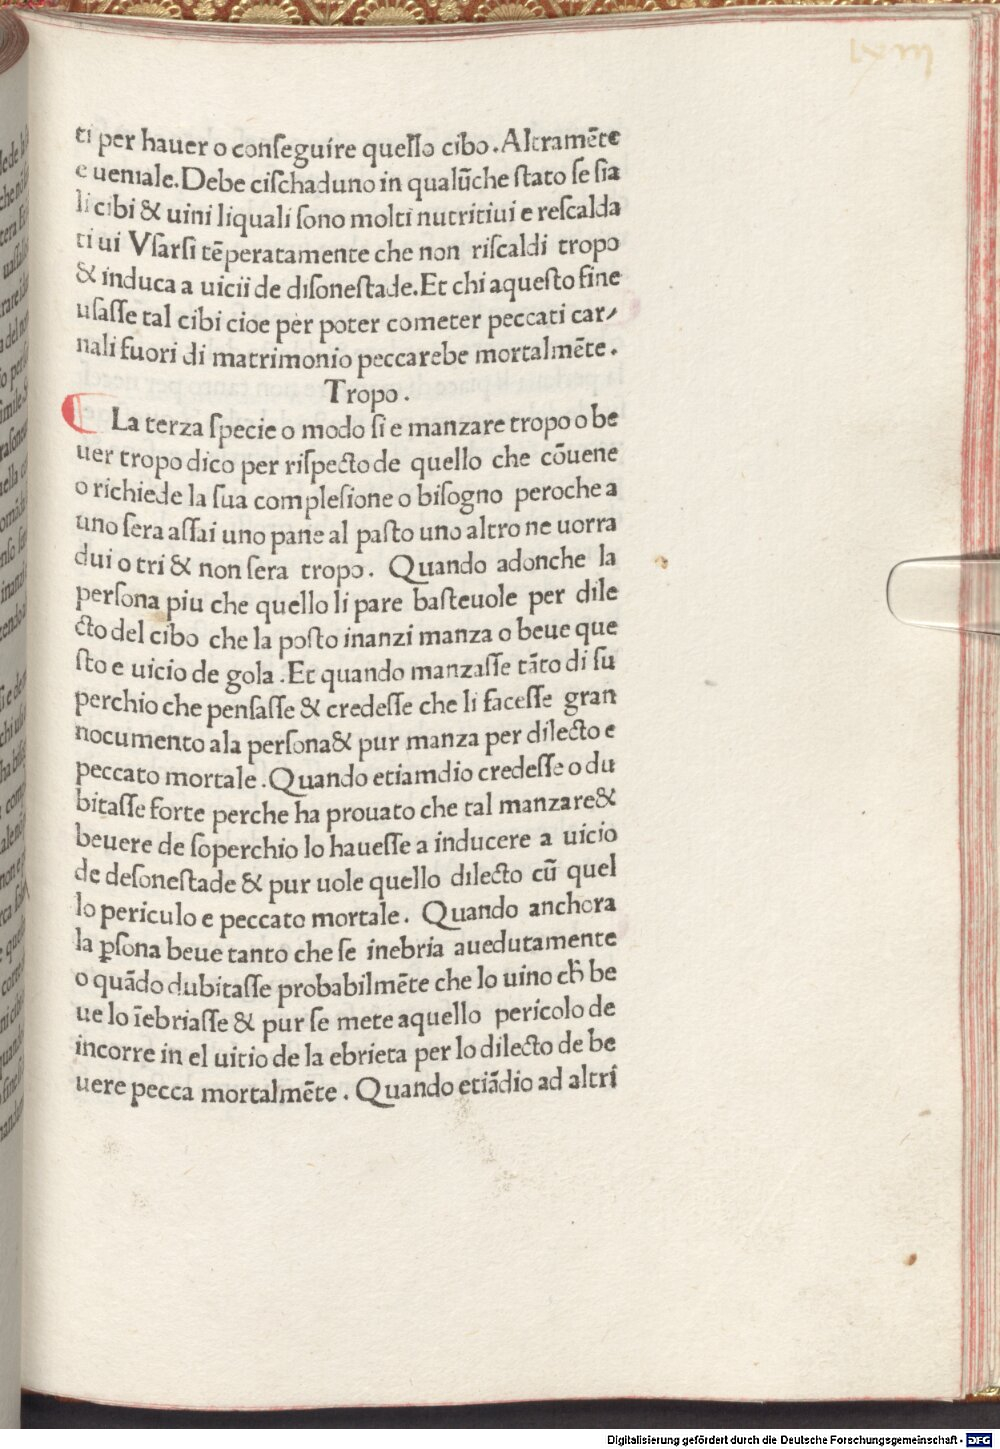 lxiii
ti per hauer o conſeguire quello cibo. Altramēte
e ueniale. Debe ciſchaduno in qualūche ſtato ſe ſia
li cibi & uini liquali ſono molti nutritiui e reſcalda
ti ui Vſarſi tēperatamente che non riſcaldi tropo
& induca a uicii de diſoneſtade. Et chi aqueſto fine
uſaſſe tal cibi cioe per poter cometer peccati car⸗
nali fuori di matrimonio peccarebe mortalmēte.
Tropo.
La terza ſpecie o modo ſi e manzare tropo o be
uer tropo dico per riſpecto de quello che cōuene
o richiede la ſua compleſione o biſogno peroche a
uno ſera aſſai uno pane al paſto uno altro ne uorra
dui o tri & non ſera tropo. Quando adonche la
perſona piu che quello li pare baſteuole per dile
cto del cibo che la poſto inanzi manza o beue que
ſto e uicio de gola. Et quando manzaſſe tāto di ſu
perchio che penſaſſe & credeſſe che li faceſſe gran
nocumento ala perſona & pur manza per dilecto e
peccato mortale. Quando etiamdio credeſſe o du
bitaſſe forte perche ha prouato che tal manzare &
beuere de ſoperchio lo haueſſe a inducere a uicio
de deſoneſtade & pur uole quello dilecto cū quel
lo periculo e peccato mortale. Quando anchora
la ꝑſona beue tanto che ſe inebria auedutamente
o quādo dubitaſſe probabilmēte che lo uino ch̄ be
ue lo īebriaſſe & pur ſe mete aquello pericolo de
incorre in el uitio de la ebrieta per lo dilecto de be
uere pecca mortalmēte. Quando etiādio ad altri
Digitalisierung gefördert durch die Deutsche Forschungsgemeinschaft - DFG